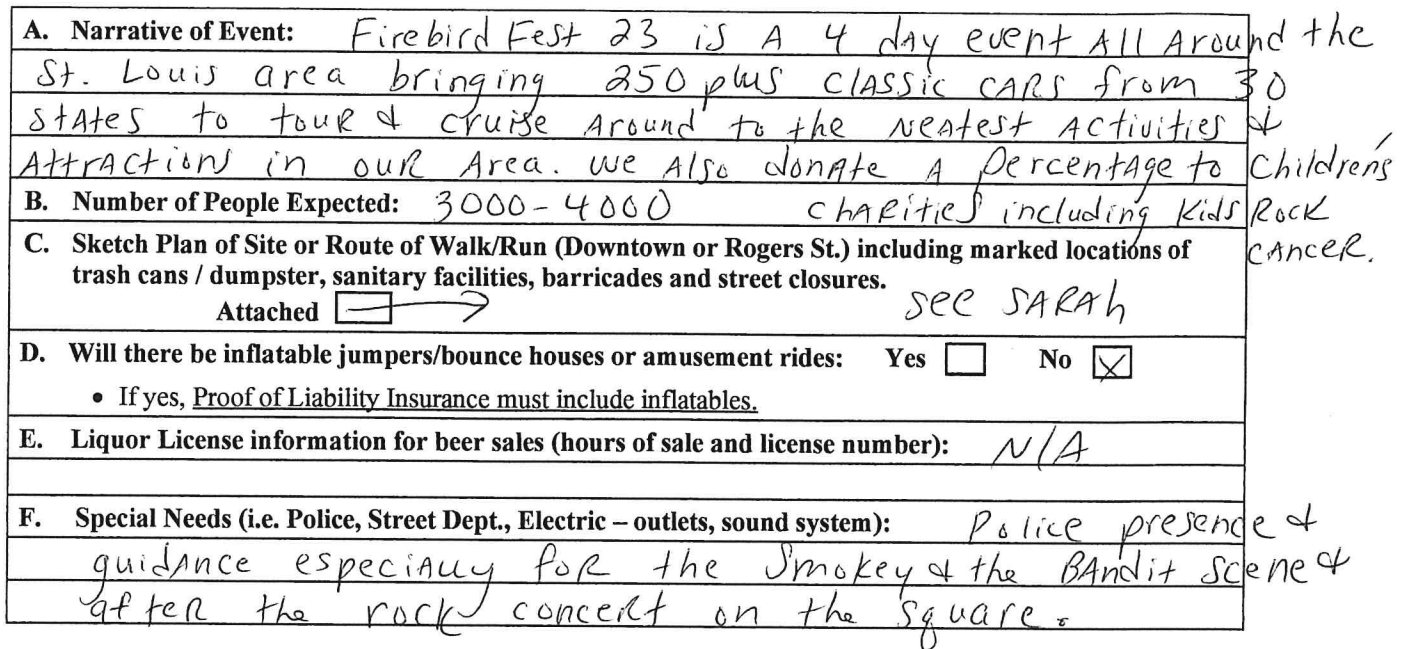 A. Narrative of Event: Firebird Fest 23 is A 4 day event All Around the
St. Louis area bringing 250 plus Classic CARS from 30
states to tour & cruise Around to the Neatest Activities &
Attractions in our Area. We Also donate A percentage to Children's
B. Number of People Expected: 3000-4000 Charities including Kids Rock
Cancer.
C. Sketch Plan of Site or Route of Walk/Run (Downtown or Rogers St.) including marked locations of
trash cans / dumpster, sanitary facilities, barricades and street closures.
Attached See SARAh
D. Will there be inflatable jumpers/bounce houses or amusement rides: Yes No
• If yes, Proof of Liability Insurance must include inflatables.
E. Liquor License information for beer sales (hours of sale and license number): N/A
F. Special Needs (i.e. Police, Street Dept., Electric – outlets, sound system): Police presence &
guidance especially for the Smokey & the Bandit Scene &
after the rock concert on the square.